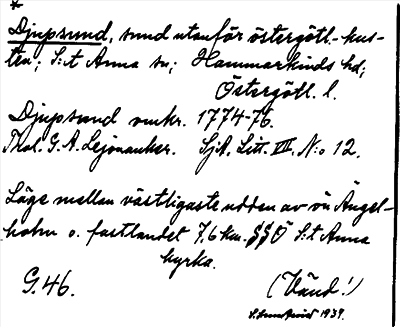 *
Djupsund, sund utanför östergötl.-kus-
ten; S:t Anna sn; Hammarkinds hd;
Östergötl. l.
Djupsund omkr. 1774-76.
Mal. G. A. Lejonanckar. SjK, Litt. VII. N:o 12.
Läge mellan västligaste udden av ön Ängel-
holm o. fastlandet 7,6 km. SSÖ S:t Anna
kyrka.
G. 46.
(Vänd!)
1939.